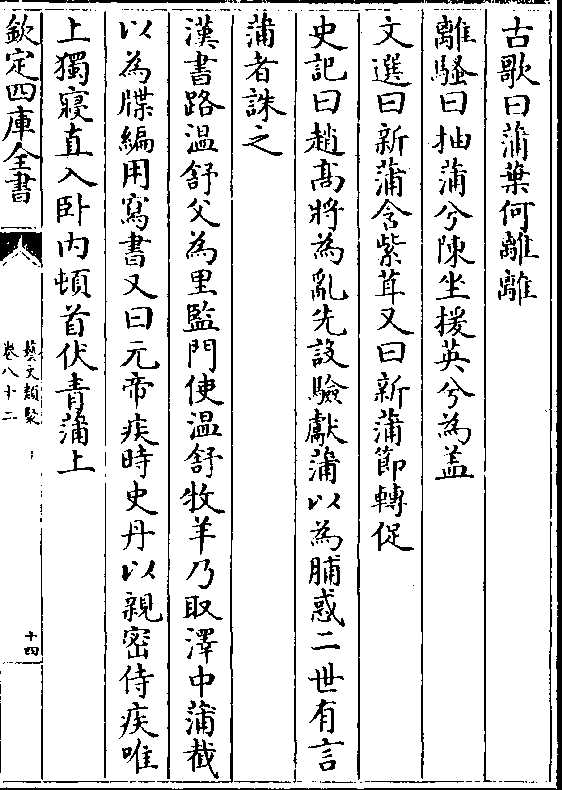 古歌曰蒲葉何離離
離騷曰抽蒲兮陳坐援英兮為盖
文選曰新蒲含紫茸又曰新蒲節轉促
史記曰趙髙將為亂先設驗獻蒲以為脯惑二世有言
蒲者誅之
漢書路溫舒父為里監門使溫舒牧羊乃取澤中蒲截
以為牒編用寫書又曰元帝疾時史丹以親密侍疾唯
上獨寢直入卧内頓首伏青蒲上
欽定四庫全書
藝文類聚
卷八十二
十四